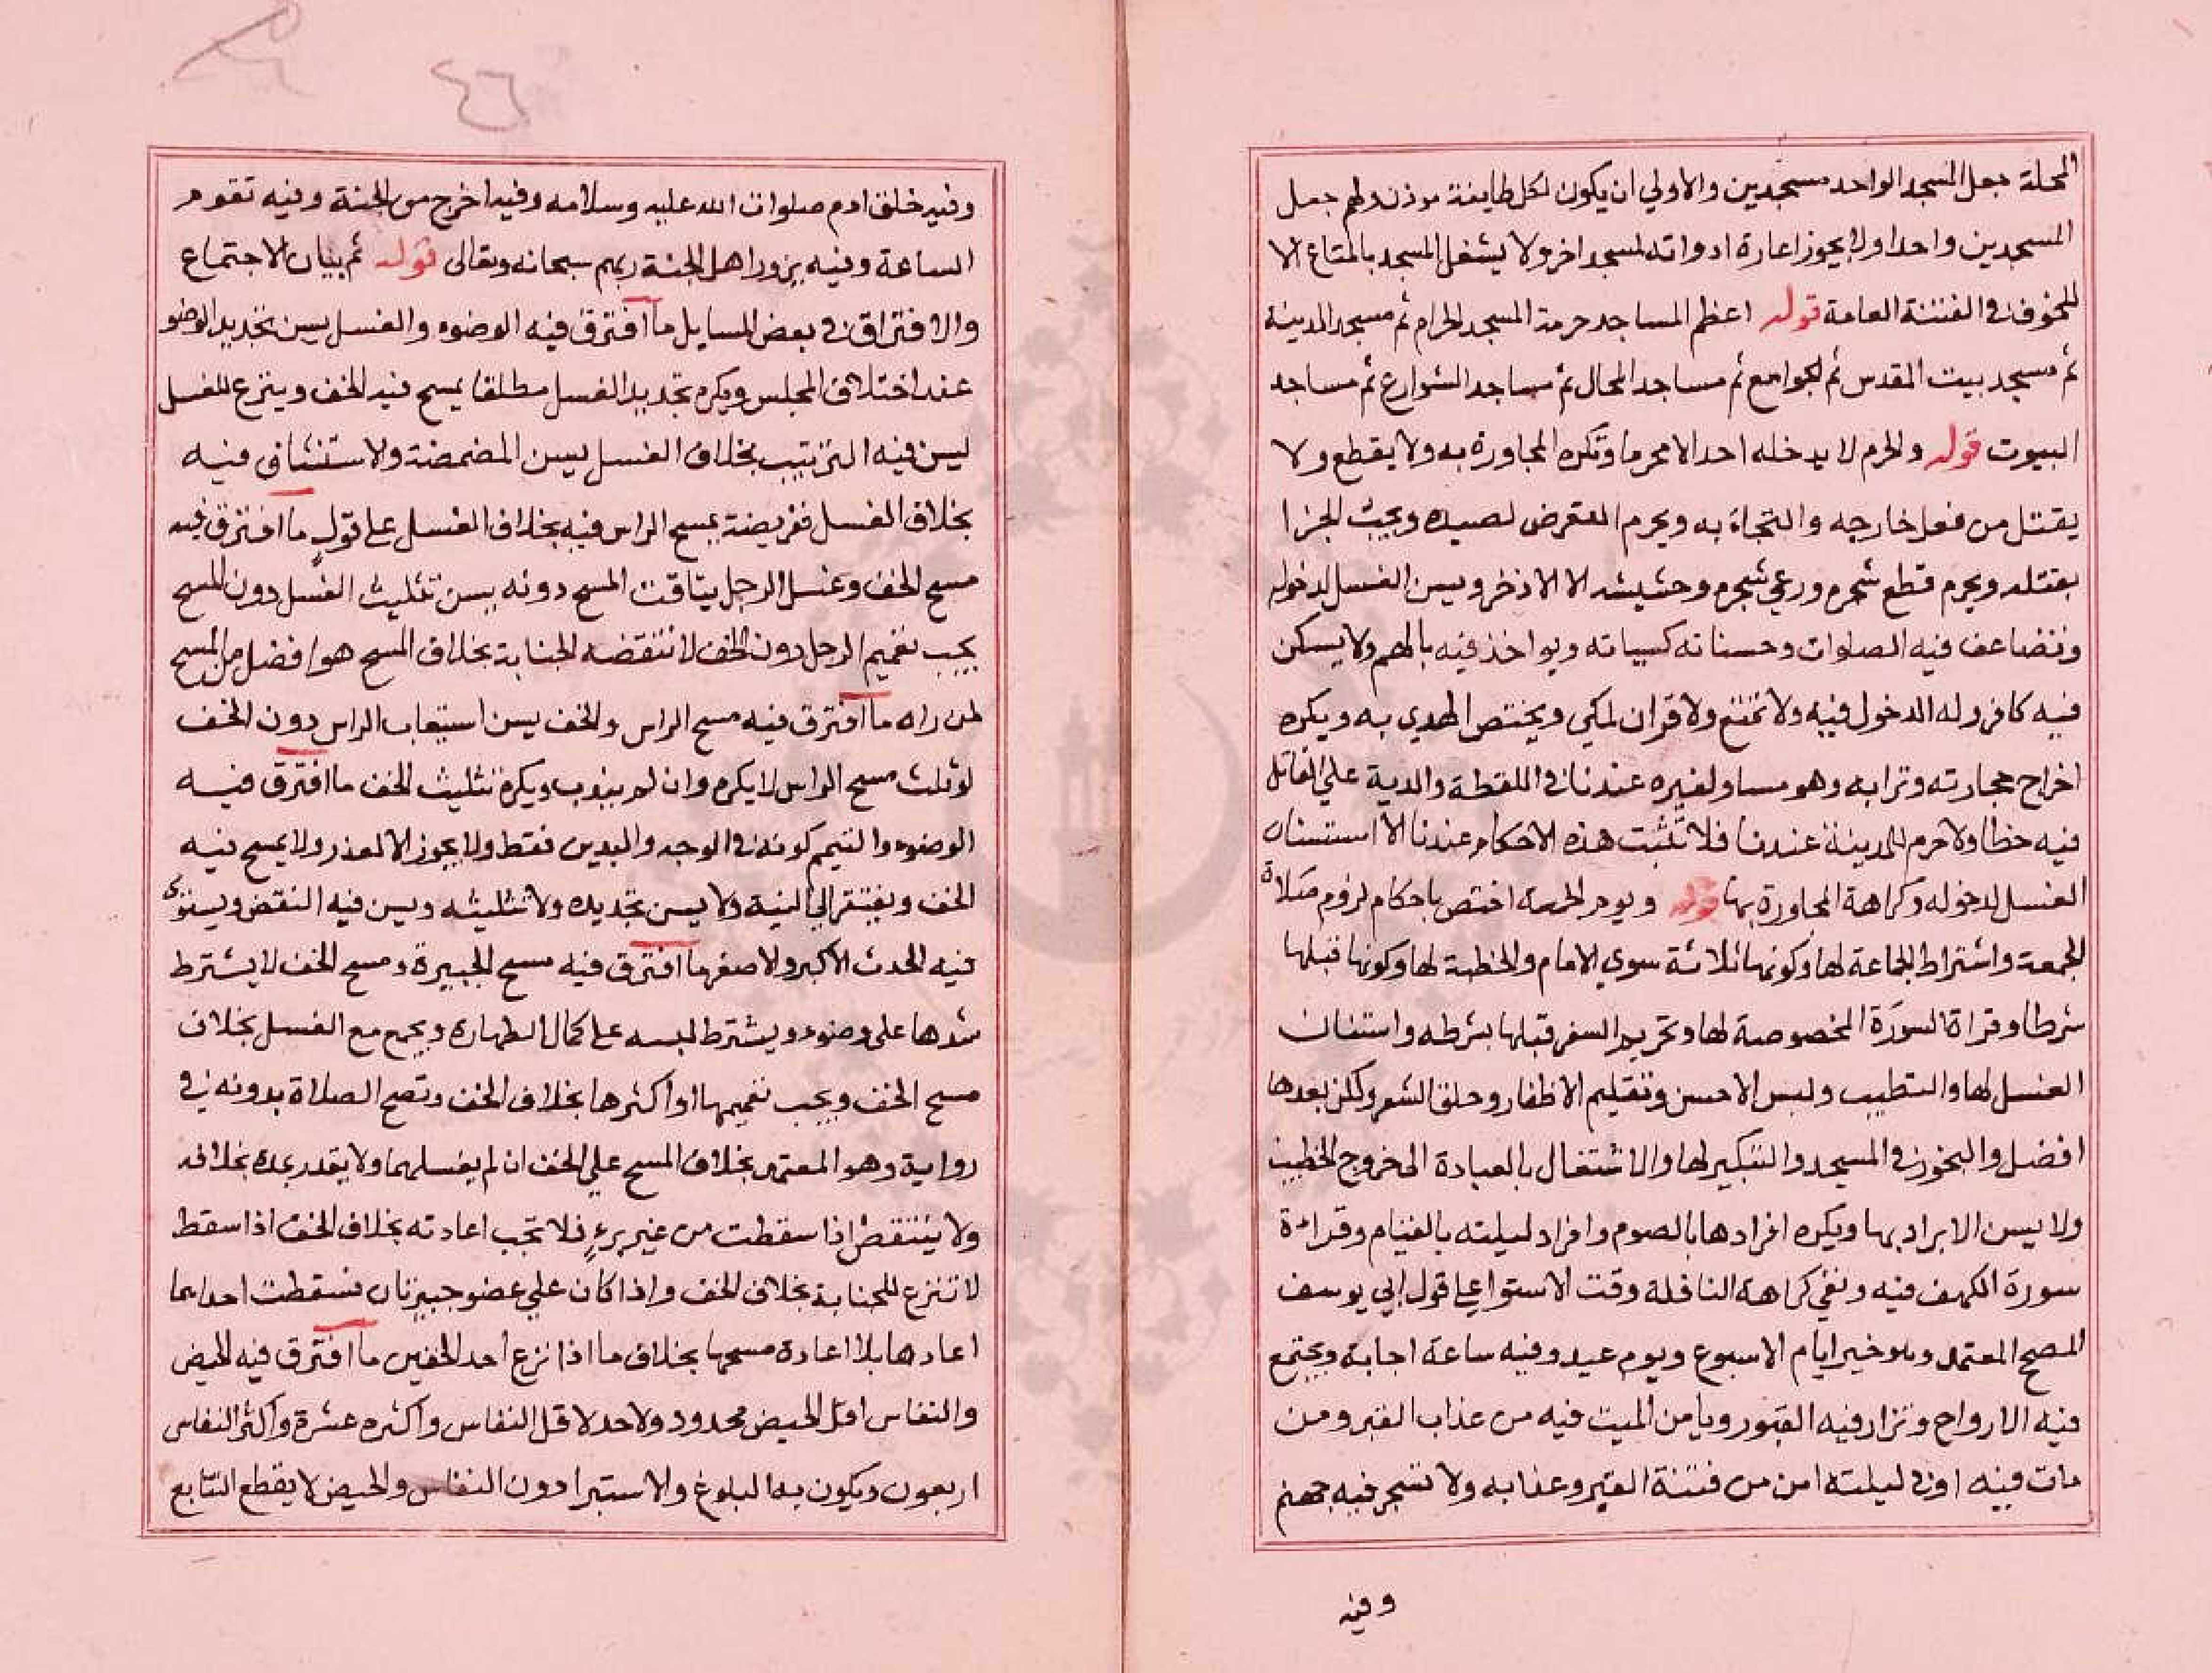 المحلة جعل المسجد الواحد مسجدين والاولي ان يكون لكل طايفة موذن ولهم جعل
المسجدين واحدا ولا يجوز اعارة ادواته لمسجد اخر ولا يشغل المسجد بالمتاع الا
للخوف في الفتنة العامة قوله اعظم المساجد حرمة المسجد الحرام ثم مسجد المدينة
ثم مسجد بيت المقدس ثم الجوامع ثم مساجد المحال ثم مساجد الشوارع ثم مساجد
البيوت قوله والحرم لا يدخله احد الا محرما وتكره المجاورة به ولا يقطع ولا
يقتل من فعل خارجه والتجاة به ويحرم التعرض لصيده ويجب الجزا
بقتله ويحرم قطع شجره ورعي شجره وحشيشه الا الاذخر ويسن الغسل لدخوله
وتضاعف فيه الصلوات وحسناته كسياته ويواخذ فيه بالهم ولا يسكن
فيه كافر وله الدخول فيه ولا تمتع ولا قران لمكي ويختص الهدي به ويكره
اخراج حجارته وترابه وهو مساو لغيره عندنا في اللقطة والدية علي القاتل
فيه خطا ولا حرم للمدينة عندنا فلا تثبت هذه الاحكام عندنا الا استسنان
الغسل لدخوله وكراهة المجاورة بها قوله ويوم الجمعة اختص باحكام لزوم صلاة
الجمعة واشتراط الجماعة لها وكونها ثلاثة سوي الامام والخطبة لها وكونها قبلها
شرطا وقراة السورة المخصوصة لها وتحريم السفر قبلها بشرطه واستنان
الغسل لها والتطيب ولبس الاحسن وتقليم الاظفار وحلق الشعر ولكن بعدها
افضل والبخور في المسجد والتبكير لها والاشتغال بالعبادة الي خروج الخطيب
ولا يسن الابراد بها ويكره افرادها بالصوم وافراد ليلته بالقيام وقراءة
سورة الكهف فيه ونفي كراهة النافلة وقت الاستوا علي قول ابي يوسف
المصحح المعتمد وهو خير ايام الاسبوع ويوم عيد وفيه ساعة اجابة ويجتمع
فيه الارواح وتزار فيه القبور ويامن الميت فيه من عذاب القبر ومن
مات فيه او في ليلته امن من فتنة القبر وعذابه ولا تسجر فيه جهنم
وفيه
٤٦
وفيه خلق ادم صلوات الله عليه وسلامه وفيه اخرج من الجنة وفيه تقوم
الساعة وفيه يزور اهل الجنة ربهم سبحانه وتعالى قوله ثم بيان الاجتماع
والافتراق في بعض المسايل ما افترق فيه الوضوء والغسل يسن تجديد الوضو
عند اختلاف المجلس ويكره تجديد الغسل مطلقا يمسح فيه الخف وينزع للغسل
يسن فيه الترتيب بخلاف الغسل يسن المضمضة والاستنشاق فيه
بخلاف الغسل ففريضة يمسح الراس فيه بخلاف الغسل علي قول ما افترق فيه
مسح الخف وغسل الرجل يتاقت المسح دونه يسن تثليث الغسل دون المسح
يجب تعميم الرجل دون الخف لا تنقضه الجنابة بخلاف المسح هو افضل من المسح
لمن راه ما افترق فيه مسح الراس والخف يسن استيعاب الراس دون الخف
لو ثلث مسح الراس لا يكره وان لم يندب ويكره تثليث الخف ما افترق فيه
الوضوء والتيمم كونه في الوجه واليدين فقط ولا يجوز الا لعذر ولا يمسح فيه
الخف ويفتقر الي النية ولا يسن تجديده ولا تثليثه ويسن فيه النقض ويستوي
فيه الحدث الاكبر والاصغر ما افترق فيه مسح الجبيرة ومسح الخف لا يشترط
شدها علي وضوء ويشترط لبسه علي كمال الطهارة ويجمع مع الغسل بخلاف
مسح الخف ويجب تعميمها او اكثرها بخلاف الخف وتصح الصلاة بدونه في
رواية وهو المعتمد بخلاف المسح علي الخف ان لم يغسلهما ولا يقدر بمدة بخلافه
ولا ينتقض اذا سقطت من غير برء فلا تجب اعادته بخلاف الخف اذا سقط
لا تنزع للجنابة بخلاف الخف واذا كان علي عضو جبيرتان فسقطت احداهما
اعادها بلا اعادة مسحها بخلاف ما اذا نزع احد الخفين ما افترق فيه الحيض
والنفاس اقل الحيض محدود ولا حد لاقل النفاس واكثره عشرة واكثر النفاس
اربعون ويكون به البلوغ والاستبرا دون النفاس والحيض لا يقطع التتابع